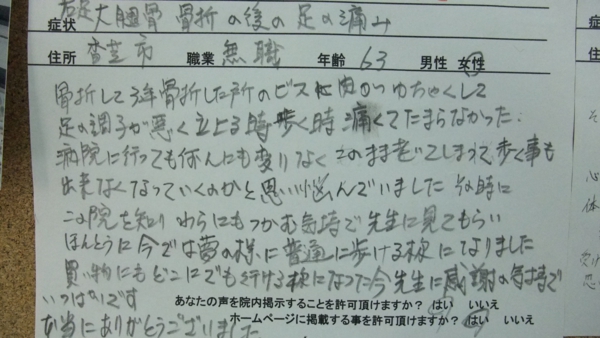 右足大腿骨 骨折の後の足の痛み
症状
住所 香芝市 職業 無職 年齢 63 男性 女性
骨折して3年骨折した所のビスに肉がゆちゃくして
足の調子が悪く立上る時歩く時痛くてたまらなかった.
病院に行っても何んにも変りなくこのまま老いてしまうて歩く事も
出来なくなっていくのかと思い悩んでいました そな時に
この院を知り わらにもつかむ気持で先生に見てもらい
ほんとうに今では夢の様に普通に歩ける様になりました
買い物にもどこにでも行ける様になった今先生に感謝の気持で
いっぱいです
あなたの声を院内掲示することを許可頂けますか? はい いいえ
ホームページに掲載する事を許可頂けますか? はい いいえ
本当にありがとうございました
そ
心
体
受け
思